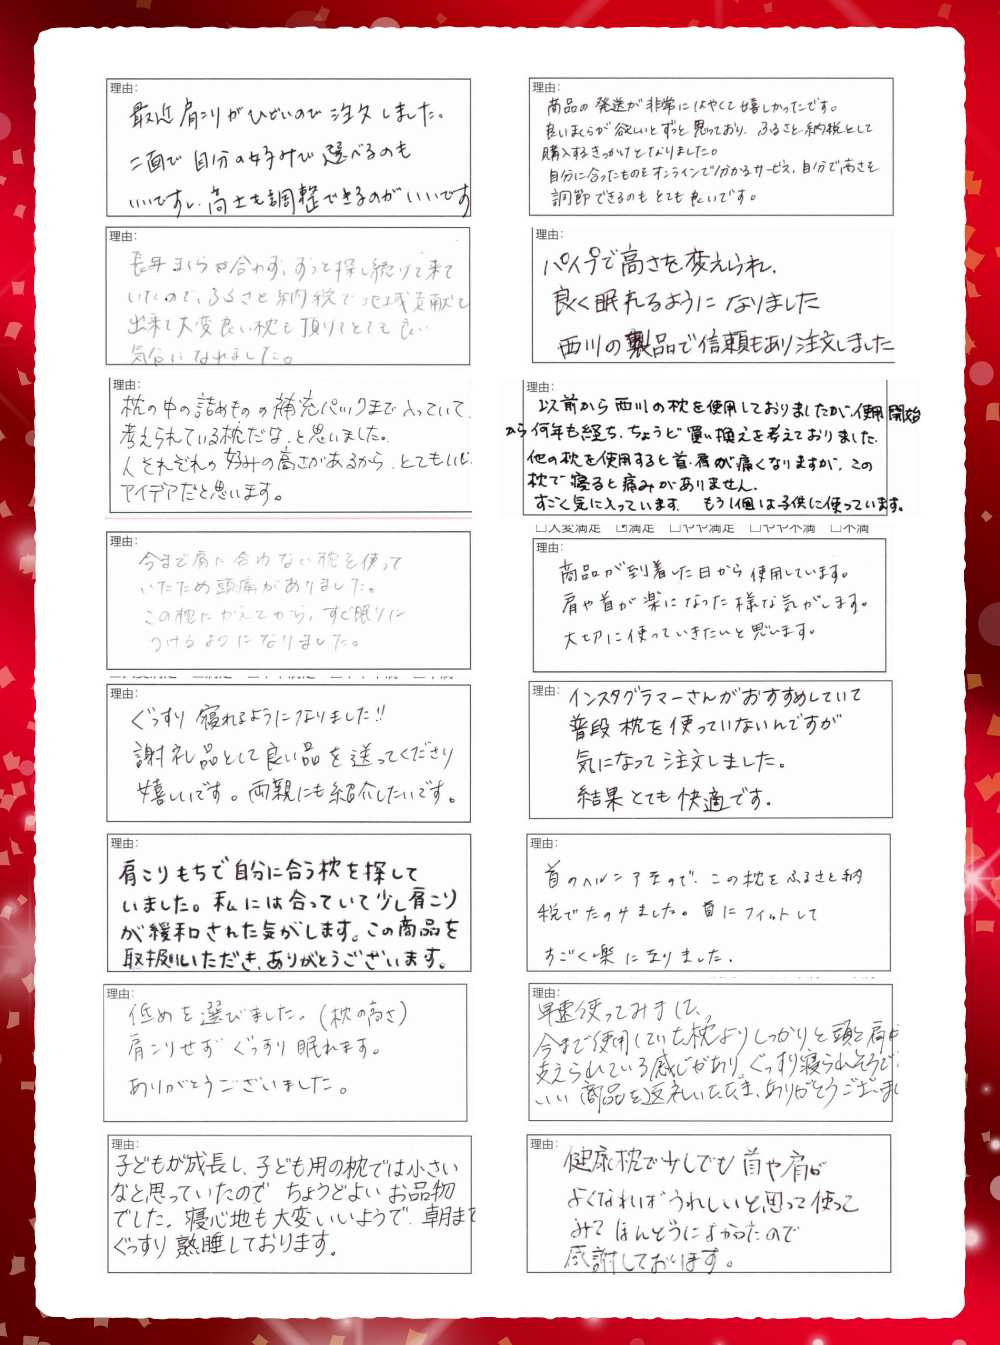 理由:
最近肩こりがひどいので注文しました。
二面で自分の好みで選べるのも
いいですし、高さも調整できるのがいいです
理由:
商品の発送が非常にはやくて嬉しかったです。
良いまくらが欲しいとずっと思っており、ふるさと納税として
購入するきっかけとなりました。
自分に合ったものをオンラインで分かるサービス、自分で高さを
調節できるのもとても良いです。
理由:
長年まくらが合わず、ずっと探し続けて来て
いたので、ふるさと納税で地域貢献も
出来て大変良い枕も頂けてとても良い
気分になれました。
理由:
パイプで高さを変えられ、
良く眠れるようになりました
西川の製品で信頼もあり注文しました
理由:
枕の中の詰めものの補充パックまで入っていて、
考えられている枕だな、と思いました。
人それぞれの好みの高さがあるから、とてもいい
アイデアだと思います。
理由:
以前から西川の枕を使用しておりましたが、使用開始
から何年も経ち、ちょうど買い換えを考えておりました。
他の枕を使用すると首・肩が痛くなりますが、この
枕で寝ると痛みがありません。
すごく気に入っています。 もう1個は子供に使っています。
理由:
今まで肩に合わない枕を使って
いたため頭痛がありました。
この枕にかえてから、すぐ眠りに
つけるようになりました。
□大変満足 ☑満足 □やや満足 □やや不満 □不満
理由:
商品が到着した日から使用しています。
肩や首が楽になった様な気がします。
大切に使っていきたいと思います。
理由:
ぐっすり寝れるようになりました!!
謝礼品として良い品を送ってくださり
嬉しいです。両親にも紹介したいです。
理由:
インスタグラマーさんがおすすめしていて
普段枕を使っていないんですが
気になって注文しました。
結果とても快適です。
理由:
肩こりもちで自分に合う枕を探して
いました。私には合っていて少し肩こり
が緩和された気がします。この商品を
取扱いいただき、ありがとうございます。
理由:
首のヘルニアなので、この枕をふるさと納
税でたのみました。首にフィットして
すごく楽になりました。
理由:
低めを選びました。(枕の高さ)
肩こりせずぐっすり眠れます。
ありがとうございました。
理由:
早速使ってみました。
今まで使用していた枕よりしっかりと頭と肩が
支えられている感じがあり、ぐっすり寝られそうです
いい商品を返礼いただき、ありがとうございまし
理由:
子どもが成長し、子ども用の枕では小さい
なと思っていたので ちょうどよいお品物
でした。寝心地も大変いいようで、朝まで
ぐっすり熟睡しております。
理由:
健康枕で少しでも首や肩が
よくなればうれしいと思って使って
みてほんとうによかったので
感謝しております。